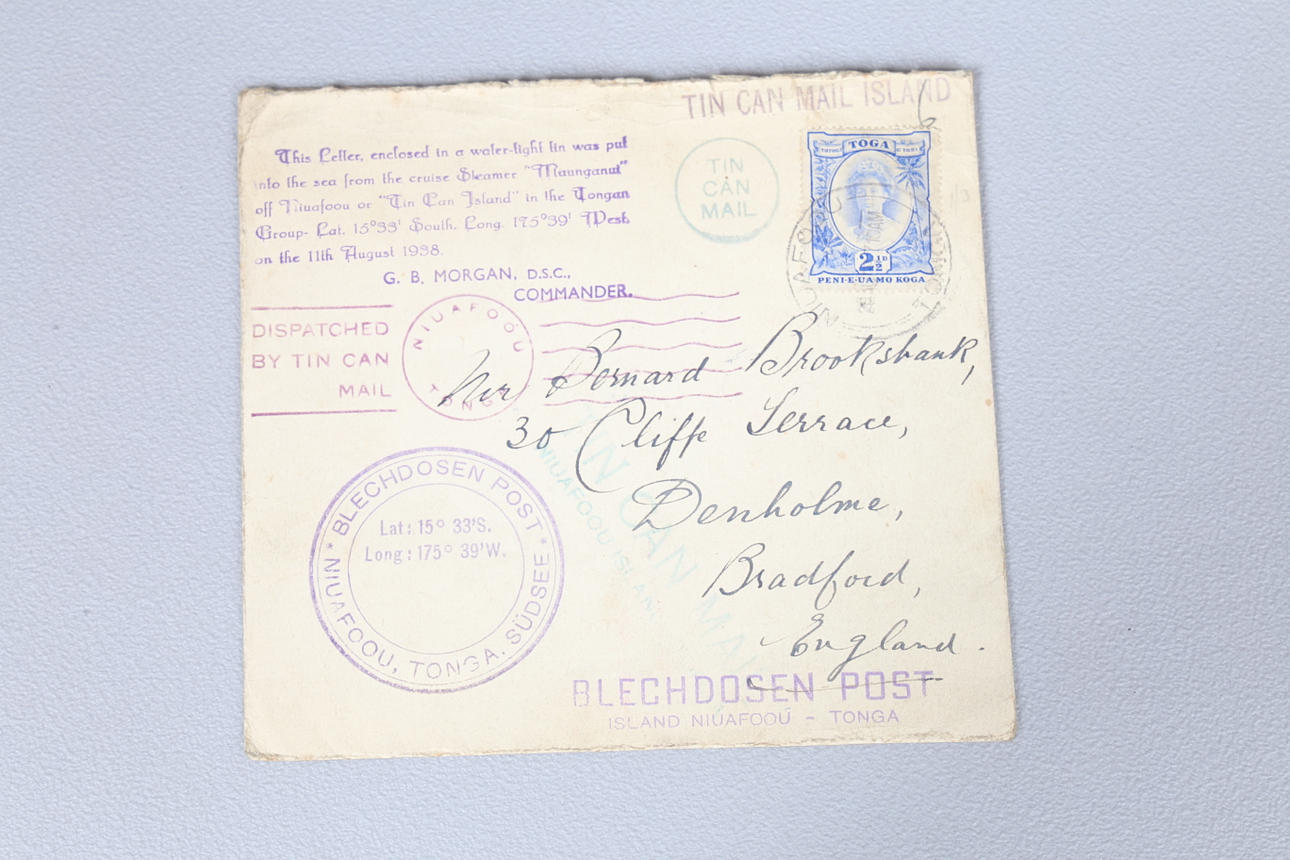 TIN CAN MAIL ISLAND
This Letter, enclosed in a water-tight tin was put
into the sea from the cruise Steamer "Maunganui"
off Niuafoou or "Tin Can Island" in the Tongan
Group- Lat. 15°33' South. Long. 175°39' West
on the 11th August 1938.
G. B. MORGAN, D.S.C.,
COMMANDER.
TIN
CAN
MAIL
TOGA
2½D
PENI-E-UA MO KOGA
NIUAFOOU
DISPATCHED
BY TIN CAN
MAIL
NIUAFOOU
TONGA
Mr Bernard Brooksbank,
30 Cliffe Terrace,
Denholme,
Bradford,
England.
TIN CAN MAIL
NIUAFOOU ISLAND
* BLECHDOSEN POST *
Lat: 15° 33'S.
Long: 175° 39'W.
NIUAFOOU, TONGA, SÜDSEE
BLECHDOSEN POST
ISLAND NIUAFOOŪ - TONGA